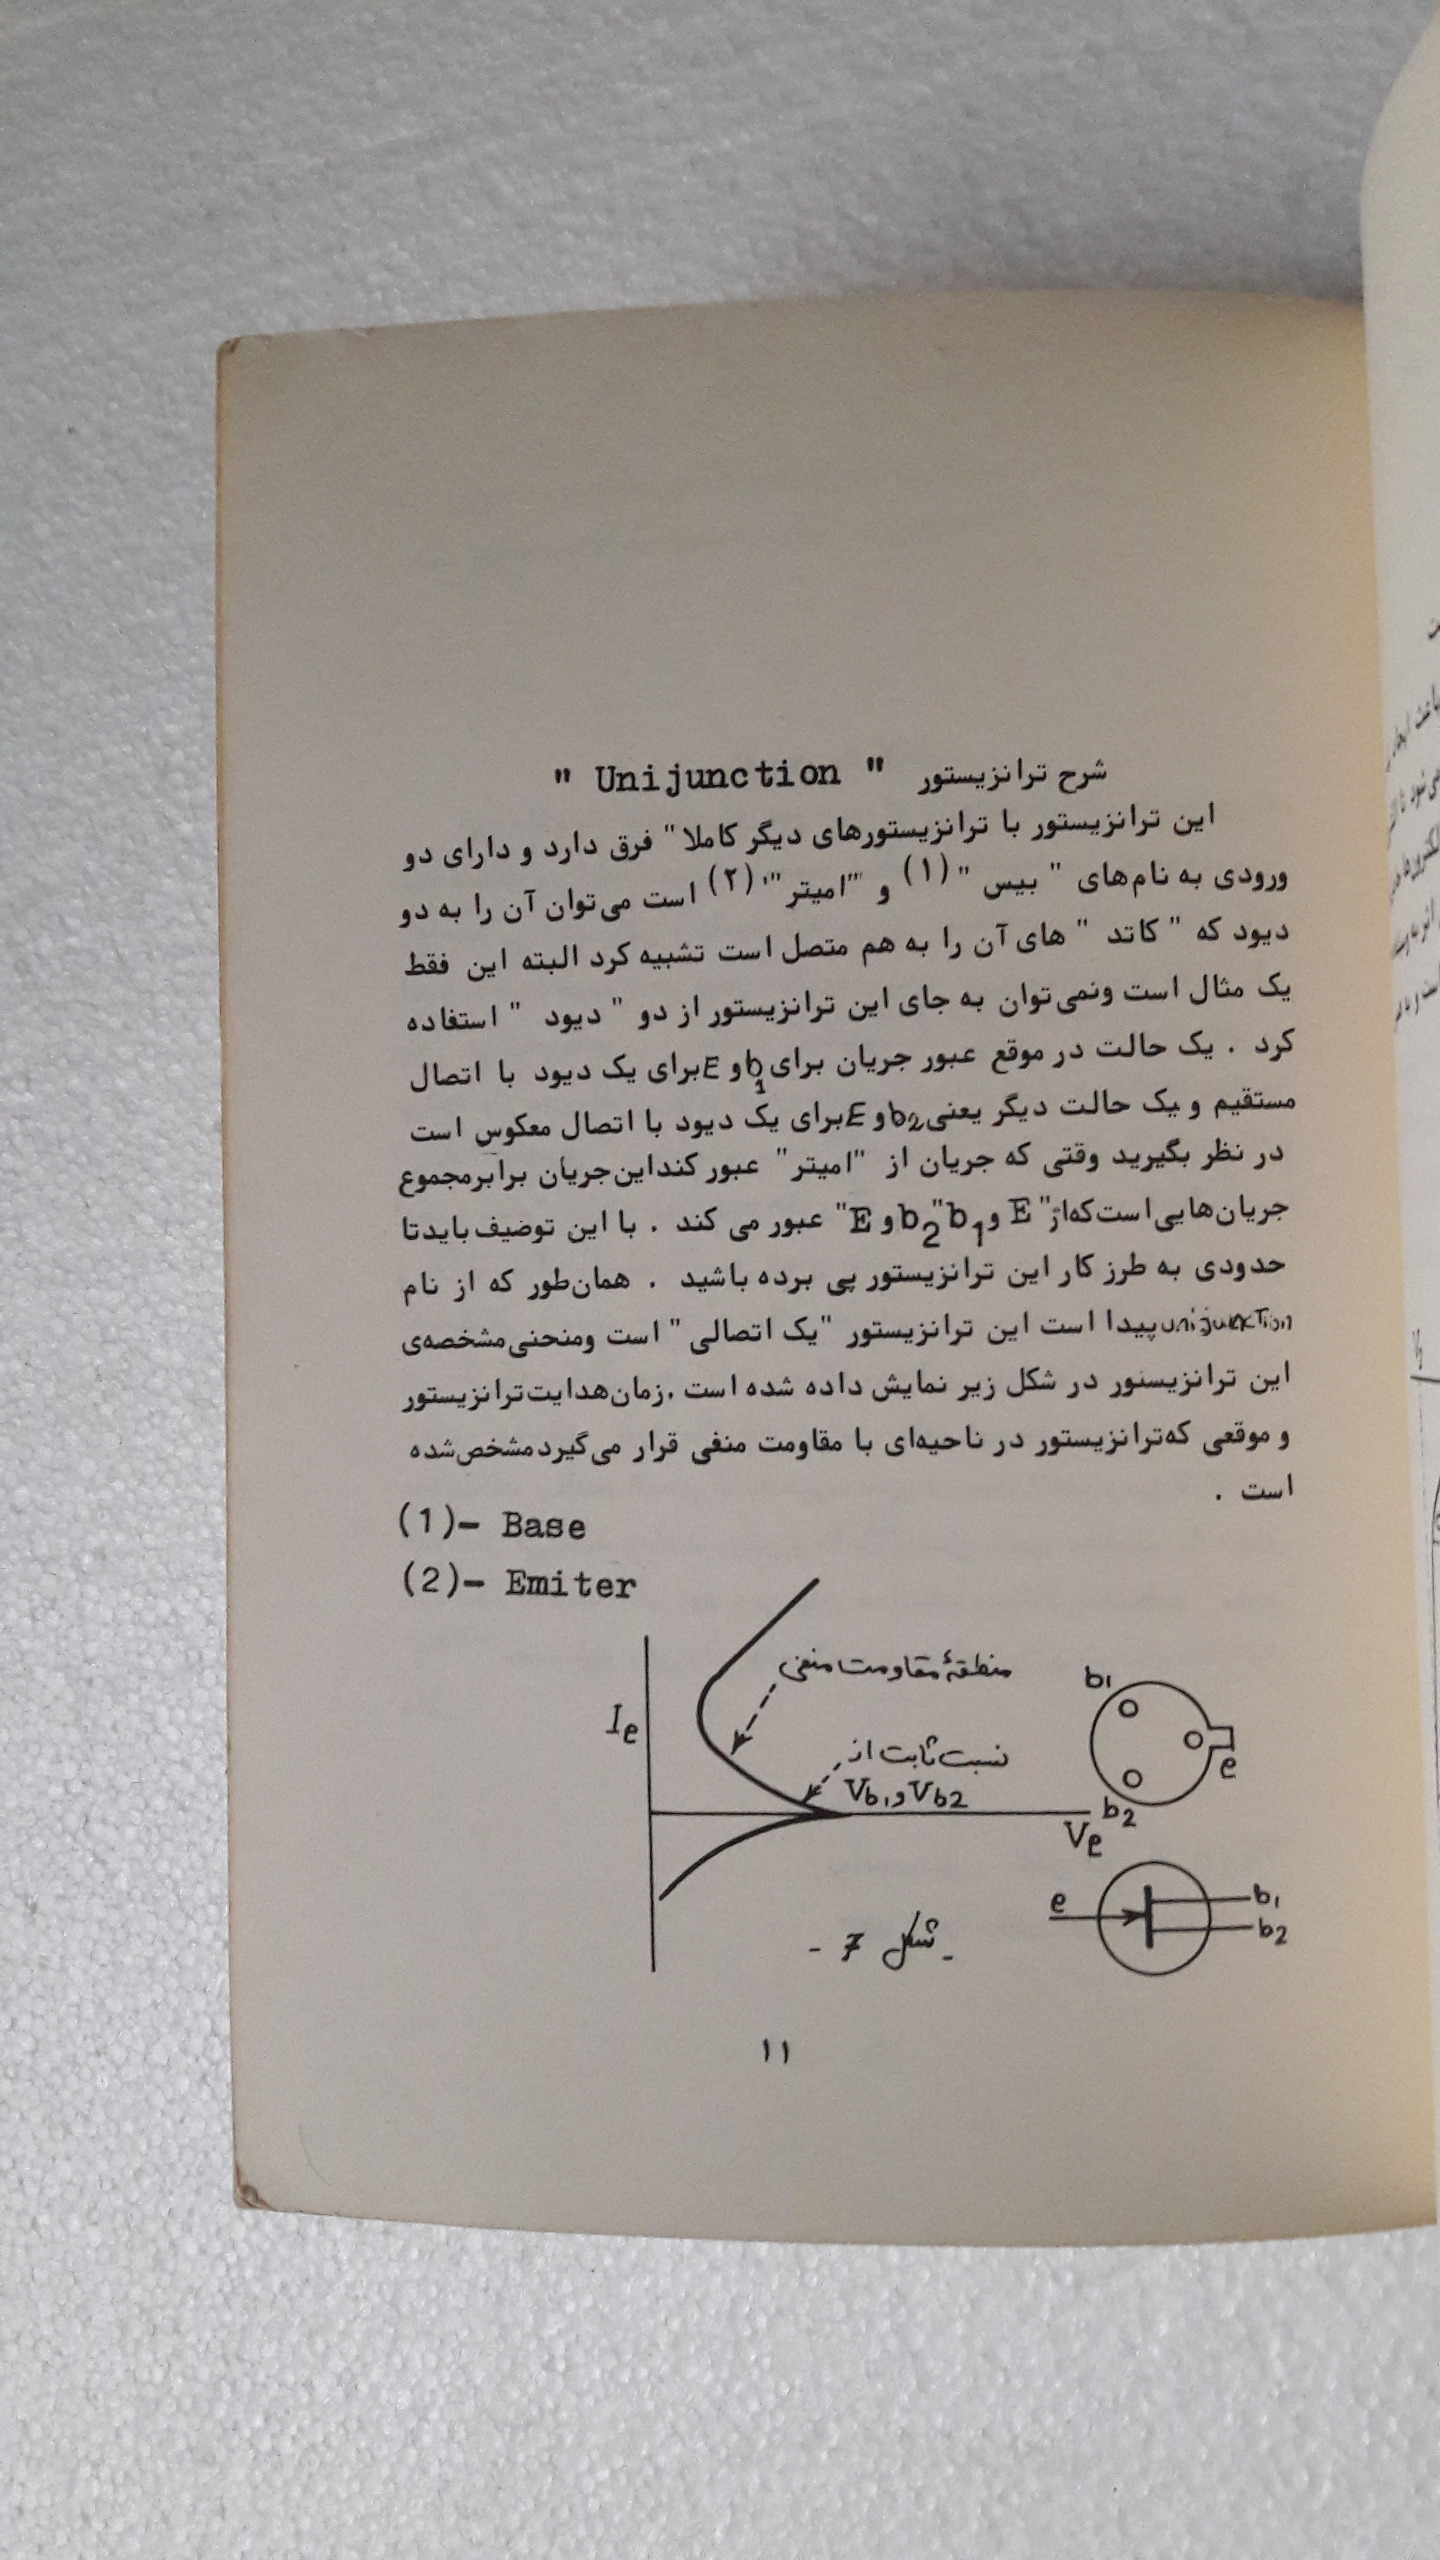 شرح ترانزیستور " Unijunction "
این ترانزیستور با ترانزیستورهای دیگر کاملا" فرق دارد و دارای دو
ورودی به نام‌های " بیس " (۱) و "امیتر" (۲) است می‌توان آن را به دو
دیود که " کاتد " های آن را به هم متصل است تشبیه کرد البته این فقط
یک مثال است ونمی‌توان به جای این ترانزیستور از دو " دیود " استفاده
کرد . یک حالت در موقع عبور جریان برای b1 و E برای یک دیود با اتصال
مستقیم و یک حالت دیگر یعنی b2 و E برای یک دیود با اتصال معکوس است
در نظر بگیرید وقتی که جریان از "امیتر" عبور کنداین‌جریان برابرمجموع
جریان‌هایی‌است‌که‌از" E و b1" b2 و E" عبور می کند . با این توضیف‌بایدتا
حدودی به طرز کار این ترانزیستور پی برده باشید . همان‌طور که از نام
unijunction پیدا است این ترانزیستور "یک اتصالی " است ومنحنی‌مشخصه‌ی
این ترانزیستور در شکل زیر نمایش داده شده است .زمان‌هدایت‌ترانزیستور
و موقعی که‌ترانزیستور در ناحیه‌ای با مقاومت منفی قرار می‌گیردمشخص‌شده
است .
(1)- Base
(2)- Emiter
منطقهٔ مقاومت منفی
Ie
نسبت ثابت از
Vb1 و Vb2
Ve
b1
e
b2
e
b1
b2
- شکل 7 -
۱۱